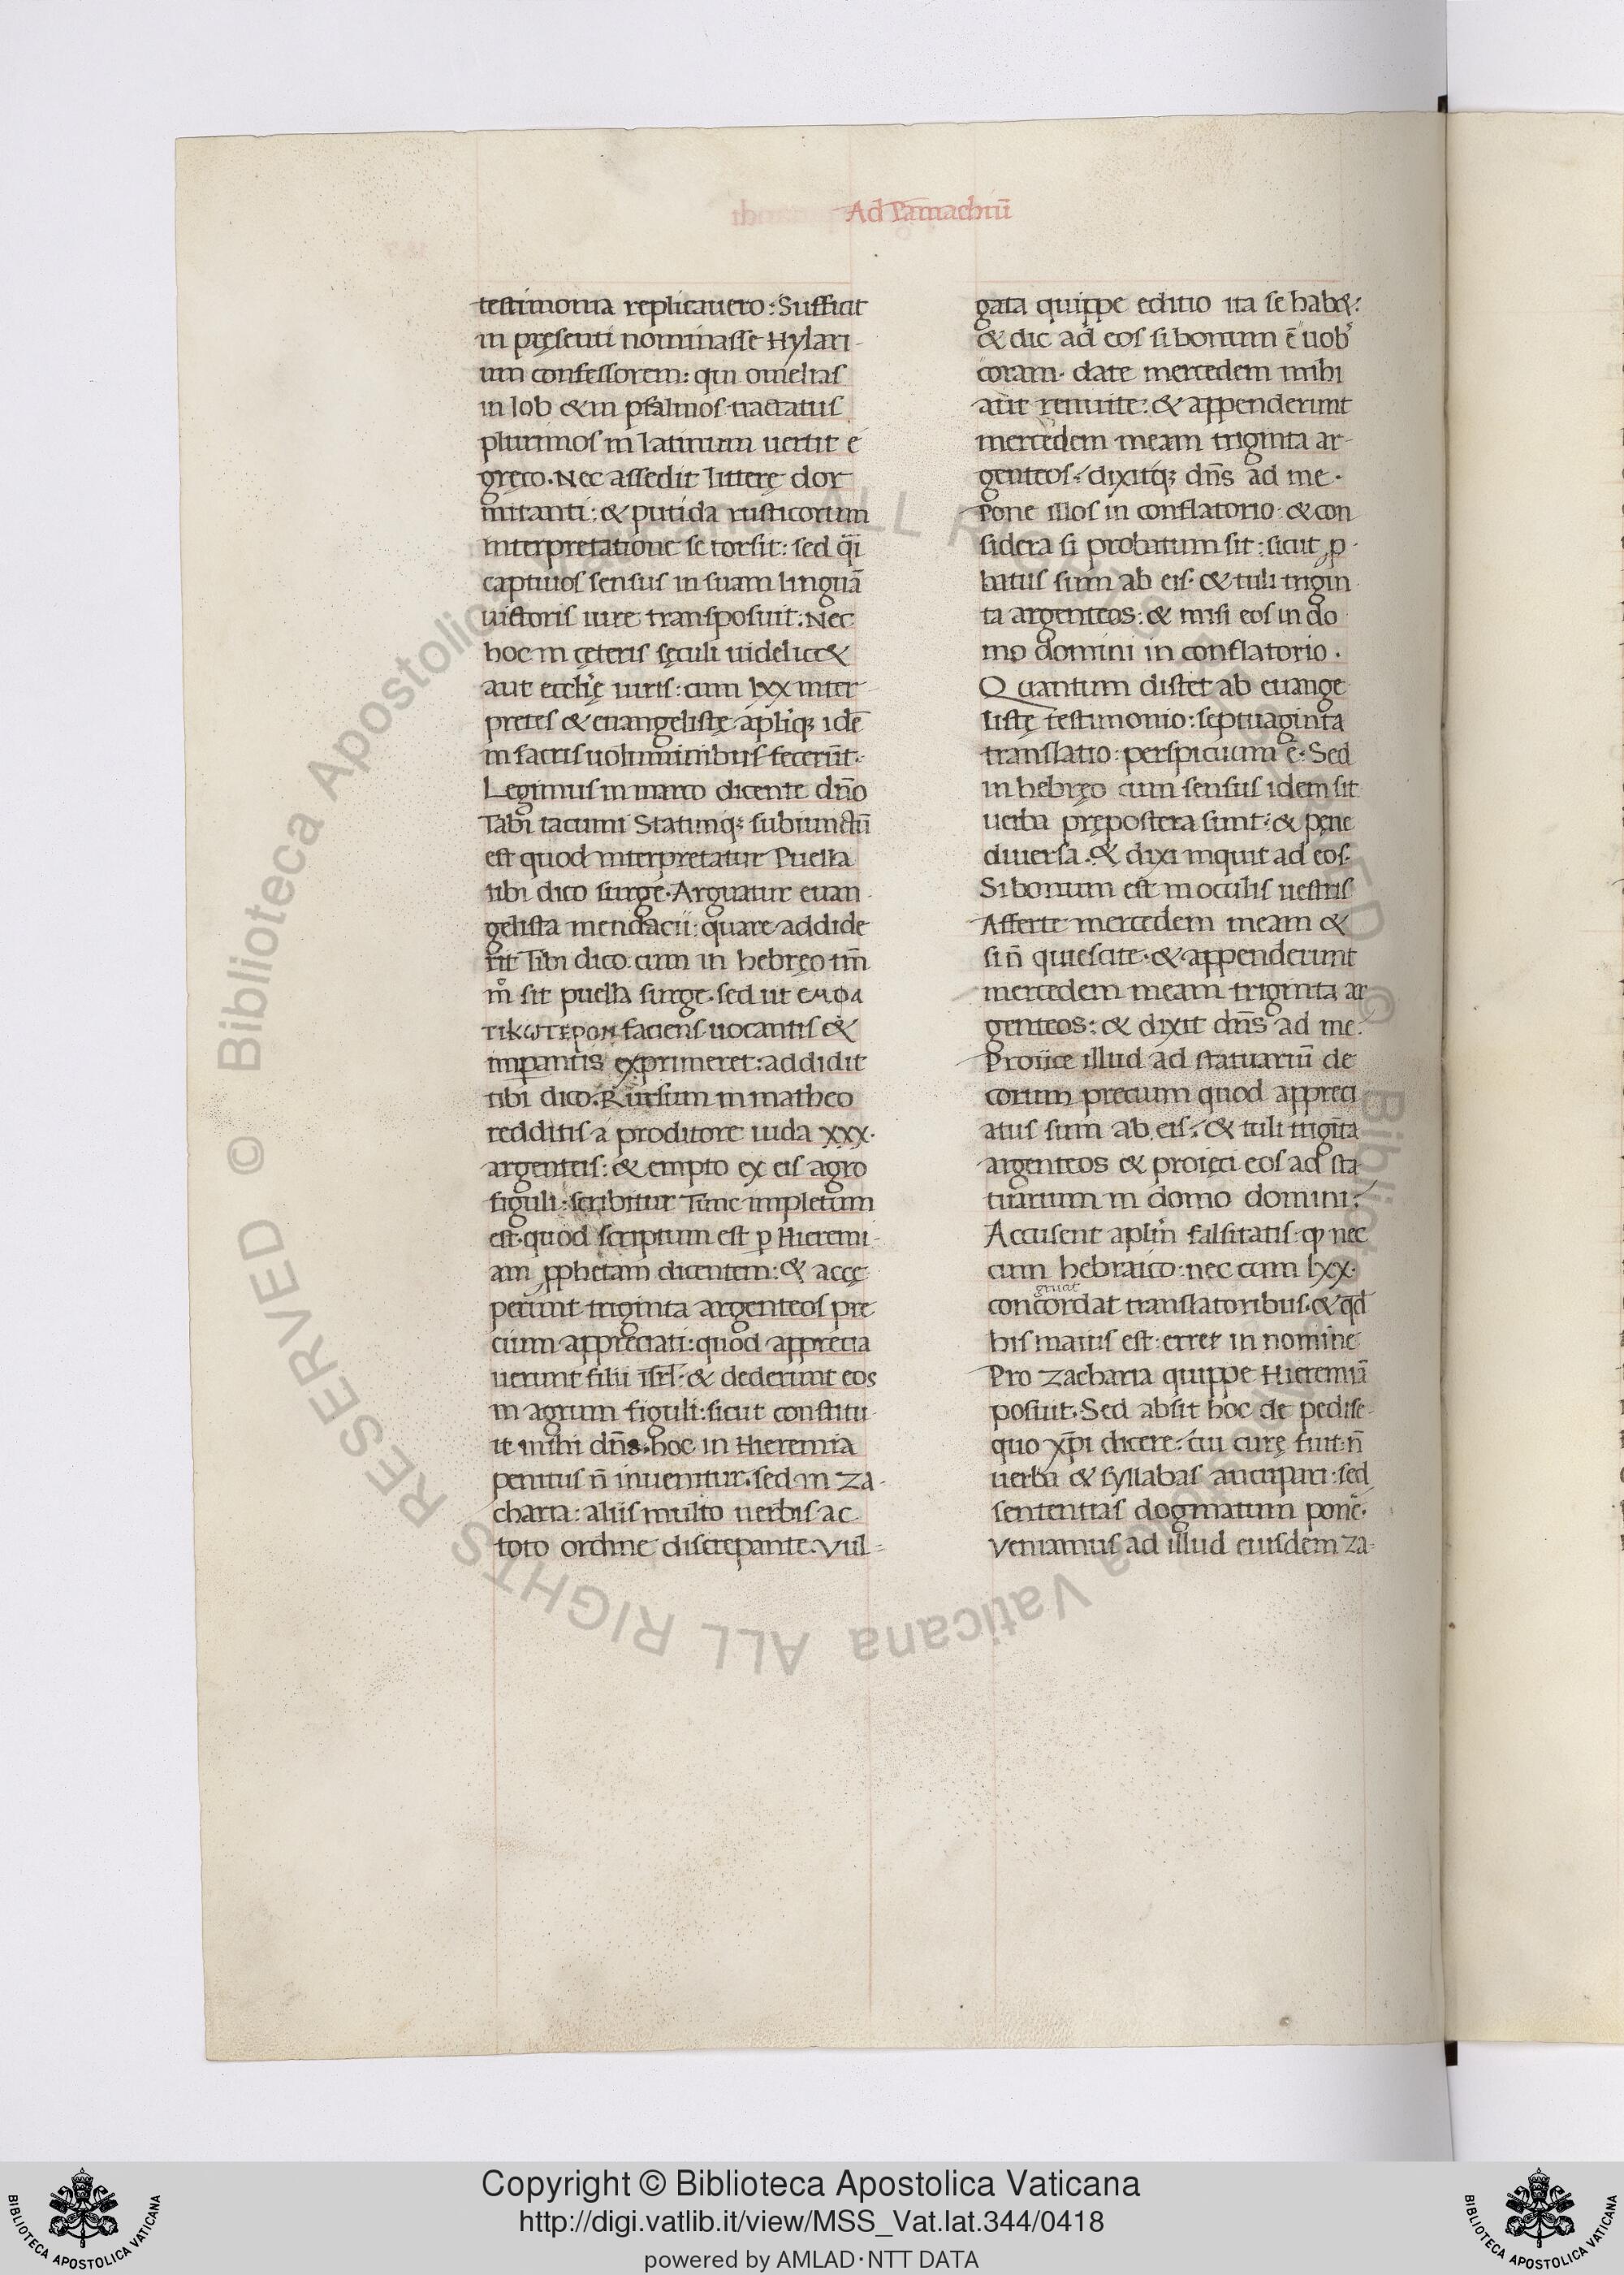 Ad Pāmachiū
testimonia replicauero: Sufficit
in pręsenti nominasse Hylari-
um confessorem: qui omelias
in Iob & in psalmos tractatus
plurimos in latinum uertit e
gręco. Nec assedit litterę dor
mitanti: & putida rusticorum
interpretatione se torsit: sed q̄i
captiuos sensus in suam linguā
uictoris iure transposuit. Nec
hoc in cęteris sęculi uidelic&
aut eccl̄ię uiris: cum lxx inter
pretes & euangelistę apl̄iq; idē
in sacris uoluminibus fecerūt.
Legimus in marco dicente dn̄o
Tabi tacumi Statimq; subiunctū
est quod interpretatur Puella
tibi dico surge. Arguatur euan
gelista mendacii: quare addide
rit Tibi dico. cum in hebręo tm̄
m̊ sit puella surge. sed ut ЄΜΦΑ
ΤΙΚѠΤЄΡΟΝ faciens uocantis &
imꝑantis exprimeret: addidit
tibi dico. Rursum in matheo
redditis a proditore iuda xxx.
argenteis: & empto ex eis agro
figuli: scribitur Tunc impletum
est. quod scriptum est ꝑ Hieremi-
am ꝓphetam dicentem: & accę
perunt triginta argenteos pre
cium appreciati: quod apprecia
uerunt filii Isrl̄. & dederunt eos
in agrum figuli: sicut constitu-
it mihi dn̄s. hoc in Hieremia
penitus n̄ inuenitur. sed in Za-
charia: aliis multo uerbis ac
toto ordine discrepante. Vul-
gata quippe editio ita se hab&:
& dic ad eos si bonum ē uob̓
coram. date mercedem mihi
aut renuite: & appenderunt
mercedem meam triginta ar-
genteos: dixitq; dn̄s ad me.
Pone illos in conflatorio: & con
sidera si probatum sit: sicut ꝓ-
batus sum ab eis. & tuli trigin
ta argenteos: & misi eos in do
mo domini in conflatorio.
Quantum distet ab euange
listę testimonio: septuaginta
translatio: perspicuum ē. Sed
in hebręo cum sensus idem sit
uerba prępostera sunt: & pęne
diuersa. & dixi inquit ad eos.
Si bonum est in oculis uestris
Afferte mercedem meam &
si n̄ quiescite. & appenderunt
mercedem meam triginta ar
genteos: & dixit dn̄s ad me.
Proiice illud ad statuariū de
corum precium quod appreci
atus sum ab eis: & tuli trigīta
argenteos & proięci eos ad sta
tuarium in domo domini:
Accusent apl̄m falsitatis: ꝙ nec
cum hebraico: nec cum lxx.
gruat
concordat translatoribus. & qd̄
his maius est: erret in nomine
Pro Zacharia quippe Hieremiā
posuit. Sed absit hoc de pedise-
quo xp̄i dicere: cui curę fuit: n̄
uerba & syllabas aucupari: sed
sententias dogmatum ponē.
Veniamus ad illud eiusdem Za-
© Biblioteca Apostolica Vaticana ALL RIGHTS RESERVED
© Biblioteca Apostolica Vaticana ALL RIGHTS RESERVED
Copyright © Biblioteca Apostolica Vaticana
http://digi.vatlib.it/view/MSS_Vat.lat.344/0418
powered by AMLAD·NTT DATA
BIBLIOTECA APOSTOLICA VATICANA
BIBLIOTECA APOSTOLICA VATICANA